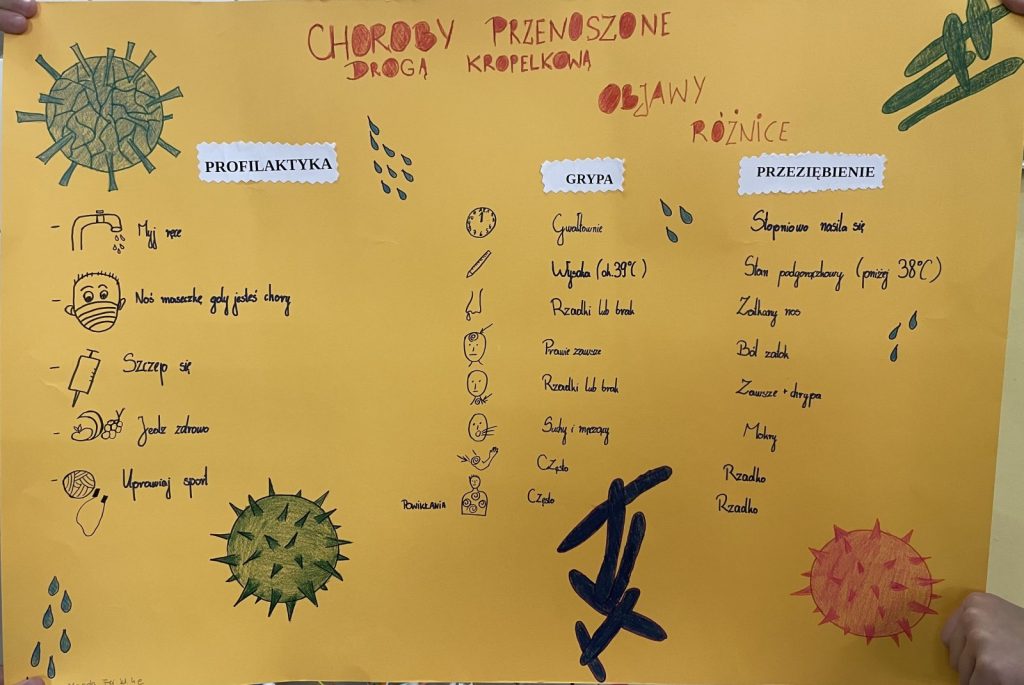 CHOROBY PRZENOSZONE
DROGĄ KROPELKOWĄ
OBJAWY
RÓŻNICE
PROFILAKTYKA
- Myj ręce
- Noś maseczkę gdy jesteś chory
- Szczep się
- Jedz zdrowo
- Uprawiaj sport
GRYPA
PRZEZIĘBIENIE
Gwałtownie
Stopniowo nasila się
Wysoka (ok. 39°C)
Stan podgorączkowy (poniżej 38°C)
Rzadki lub brak
Zatkany nos
Prawie zawsze
Ból zatok
Rzadki lub brak
Zawsze + chrypa
Suchy i męczący
Mokry
Często
Rzadko
POWIKŁANIA
Często
Rzadko